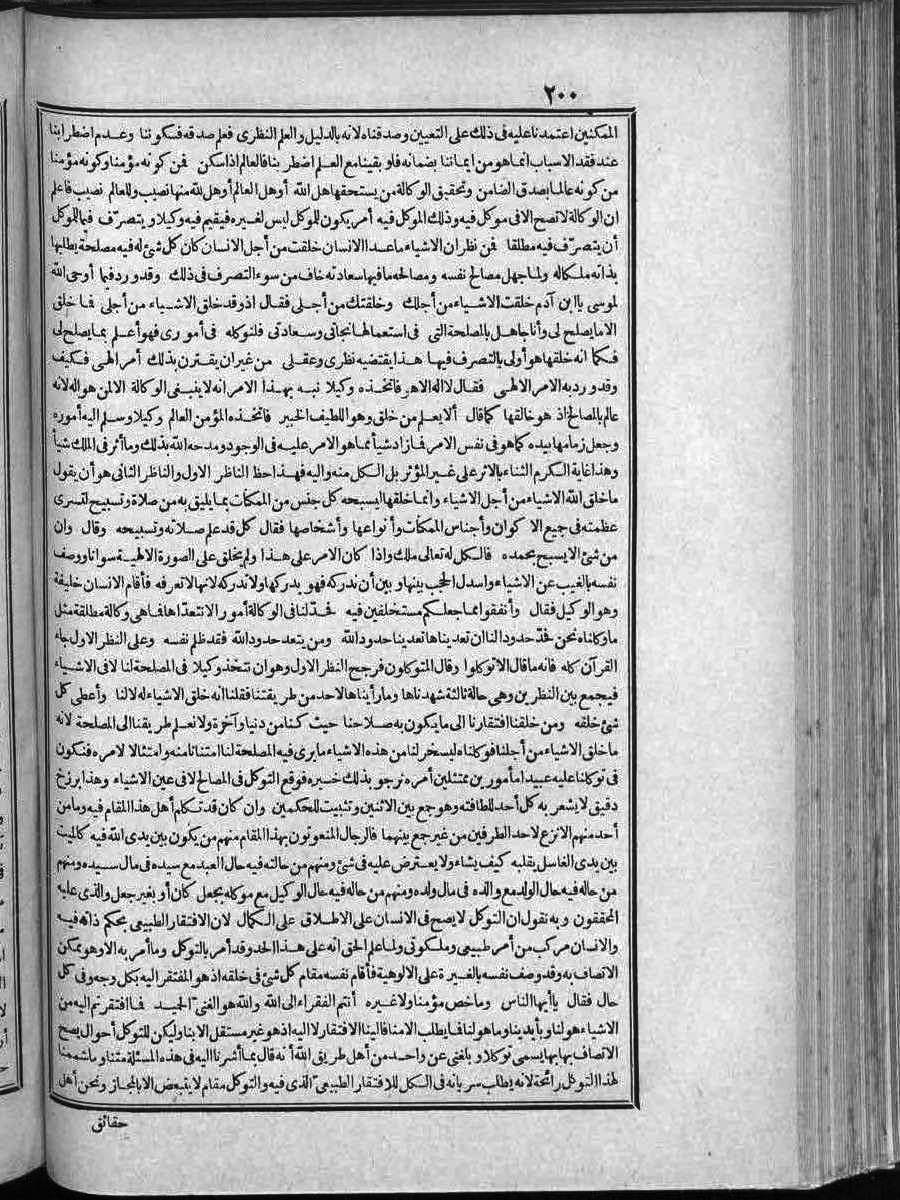 ٢٠٠
الممكنين اعتمدنا عليه في ذلك على التعيين وصدقناه لانه بالدليل والعلم النظرى فعلم صدقه فسكوننا وعدم اضطرابنا
عند فقد الاسباب انما هو من ايماننا بضمانه فلو بقينا مع العلم اضطربنا فالعالم اذا سكن فمن كونه مؤمنا وكونه مؤمنا
من كونه عالما بصدق الضامن وتحقيق الوكالة من يستحقها هل الله أو هل العالم أو هل لله منها نصيب وللعالم نصيب فاعلم
ان الوكالة لا تصح الا في موكل فيه وذلك الموكل فيه أمر يكون للموكل ليس لغيره فيقيم فيه وكيلا ويتصرّف فيما للموكل
أن يتصرّف فيه مطلقا فمن نظر ان الاشياء ما عدا الانسان خلقت من أجل الانسان كان كل شئ له فيه مصلحة يطلبها
بذاته ملكا له ولما جهل مصالح نفسه ومصالحه ما فيها سعادته خاف من سوء التصرف في ذلك وقد ورد فيما أوحى الله
لموسى يا ابن آدم خلقت الاشياء من أجلك وخلقتك من أجلى فقال اذ وقد خلق الاشياء من أجلى فما خلق
الا ما يصلح لى وأنا جاهل بالمصلحة التى فى استعمالها نجاتى وسعادتى فلنوكله فى أمورى فهو أعلم بما يصلح لى
فكما انه خلقها هو أولى بالتصرف فيها هذا يقتضيه نظرى وعقلى من غير ان يقترن بذلك أمر الهى فكيف
وقد ورد به الامر الالهى فقال لا اله الا هو فاتخذه وكيلا نبه بهذا الامر انه لا ينبغى الوكالة الا لمن هو اله لانه
عالم بالمصالح اذ هو خالقها كما قال ألا يعلم من خلق وهو اللطيف الخبير فاتخذه المؤمن العالم وكيلا وسلم اليه أموره
وجعل زمامها بيده كما هو فى نفس الامر فما زاد شيأ مما هو الامر عليه فى الوجود ومدحه الله بذلك وما أثر فى الملك شيأ
وهذا غاية الكرم الثناء بالاثر على غير المؤثر بل الكل منه واليه فهذا حظ الناظر الاول والناظر الثانى هو أن يقول
ما خلق الله الاشياء من أجل الاشياء وانما خلقها ليسبحه كل جنس من الممكنات بما يليق به من صلاة وتسبيح لتسرى
عظمته فى جميع الاكوان وأجناس الممكنات وأنواعها وأشخاصها فقال كل قد علم صلاته وتسبيحه وقال وان
من شئ الا يسبح بحمده فالكل له تعالى ملك واذا كان الامر على هذا ولم يخلق على الصورة الالهية سوانا ووصف
نفسه بالغيب عن الاشياء واسدل الحجب بينها وبين أن تدركه فهو يدركها ولا تدركه لانها لا تعرفه فأقام الانسان خليفة
وهو الوكيل فقال وأنفقوا مما جعلكم مستخلفين فيه فحدّ لنا فى الوكالة أمورا لا نتعدّاها فما هى وكالة مطلقة مثل
ما وكلناه نحن فحدّ حدودا لنا ان تعديناها تعدينا حدود الله ومن يتعد حدود الله فقد ظلم نفسه وعلى النظر الاول جاء
القرآن كله فانه ما قال الا توكلوا وقال المتوكلون فرجح النظر الاول وهو ان نتخذه وكيلا فى المصلحة لنا لا فى الاشياء
فيجمع بين النظرين وهى حالة ثالثة شهدناها وما رأيناها لاحد من طريقتنا فقلنا انه خلق الاشياء له لا لنا وأعطى كل
شئ خلقه ومن خلقنا افتقارنا الى ما يكون به صلاحنا حيث كنا من دنيا وآخرة ولا نعلم طريقنا الى المصلحة لانه
ما خلق الاشياء من أجلنا فوكلناه ليسخر لنا من هذه الاشياء ما يرى فيه المصلحة لنا امتنانا منه وامتثالا لامره فنكون
فى توكلنا عليه عبيدا مأمورين ممتثلين أمره نرجو بذلك خيره فوقع التوكل فى المصالح لا فى عين الاشياء وهذا برزخ
دقيق لا يشعر به كل أحد للطافته وهو جمع بين الاثنين وتثبيت للحكمين وان كان قد تكلم أهل هذا المقام فيه وما من
أحد منهم الا نزع لاحد الطرفين من غير جمع بينهما فالرجال المنعوتون بهذا المقام منهم من يكون بين يدى الله فيه كالميت
بين يدى الغاسل يقلبه كيف يشاء ولا يعترض عليه فى شئ ومنهم من حالته فيه حال العبد مع سيده فى مال سيده ومنهم
من حاله فيه حال الولد مع والده فى مال ولده ومنهم من حاله فيه حال الوكيل مع موكله بجعل كان أو بغير جعل والذى عليه
المحققون وبه نقول ان التوكل لا يصح فى الانسان على الاطلاق على الكمال لان الافتقار الطبيعى بحكم ذاته فيه
والانسان مركب من أمر طبيعى وملكوتى ولما علم الحق انه على هذا الحد وقد أمر بالتوكل وما أمر به الا وهو ممكن
الاتصاف به وقد وصف نفسه بالغيرة على الالوهية فأقام نفسه مقام كل شئ فى خلقه اذ هو المفتقر اليه بكل وجه وفى كل
حال فقال يا أيها الناس وما خص مؤمنا ولا غيره أنتم الفقراء الى الله والله هو الغنىّ الحميد فما افتقرتم اليه من
الاشياء هو لنا وبأيدينا وما هو لنا فما يطلب الا منا فالينا الافتقار لا اليه اذ هو غير مستقل الا بنا ولكن للتوكل أحوال يصح
الاتصاف بها بها يسمى توكلا وبلغنى عن واحد من أهل طريق الله أنه قال بما أشرنا اليه فى هذه المسئلة متنا وما شممنا
لهذا التوكل رائحة لانه يطلب سريانه فى الكل للافتقار الطبيعىّ الذى فيه والتوكل مقام لا يتبعض الا بالمجاز ونحن أهل
حقائق